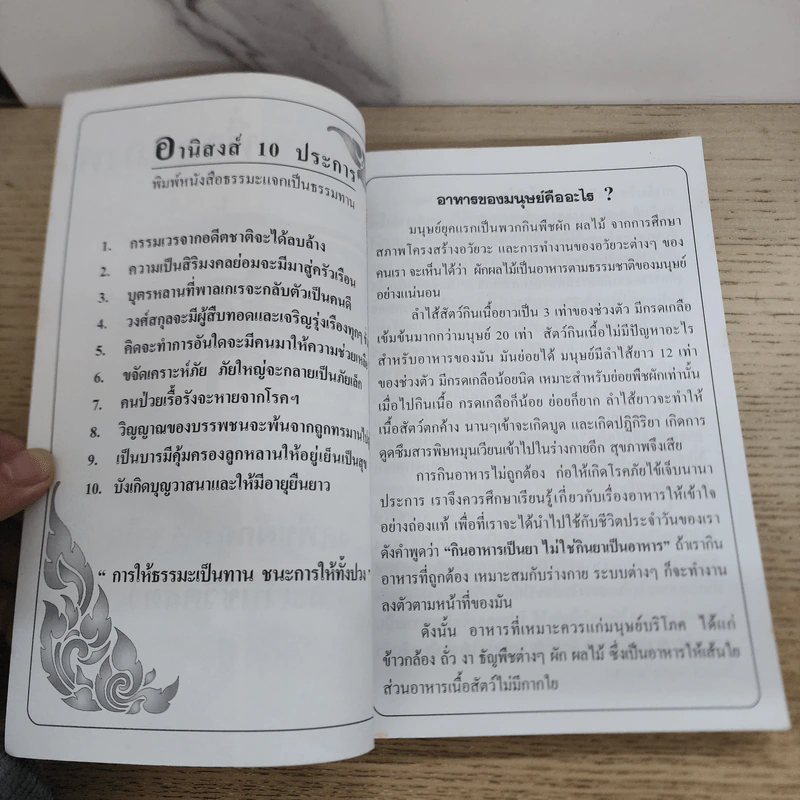 อานิสงส์ 10 ประการ
พิมพ์หนังสือธรรมะแจกเป็นธรรมทาน
1. กรรมเวรจากอดีตชาติจะได้ลบล้าง
2. ความเป็นสิริมงคลย่อมจะมีมาสู่ครัวเรือน
3. บุตรหลานที่พาลเกเรจะกลับตัวเป็นคนดี
4. วงศ์สกุลจะมีผู้สืบทอดและเจริญรุ่งเรืองทุกๆ
5. คิดจะทำการอันใดจะมีคนมาให้ความช่วยเหลือ
6. ขจัดเคราะห์ภัย ภัยใหญ่จะกลายเป็นภัยเล็ก
7. คนป่วยเรื้อรังจะหายจากโรคฯ
8. วิญญาณของบรรพชนจะพ้นจากถูกทรมาน
9. เป็นบารมีคุ้มครองลูกหลานให้อยู่เย็นเป็นสุข
10. บังเกิดบุญวาสนาและให้มีอายุยืนยาว
“ การให้ธรรมะเป็นทาน ชนะการให้ทั้งปวง
อาหารของมนุษย์คืออะไร ?
มนุษย์ยุคแรกเป็นพวกกินพืชผัก ผลไม้ จากการศึกษา
สภาพโครงสร้างอวัยวะ และการทำงานของอวัยวะต่างๆ ของ
คนเรา จะเห็นได้ว่า ผักผลไม้เป็นอาหารตามธรรมชาติของมนุษย์
อย่างแน่นอน
ลำไส้สัตว์กินเนื้อยาวเป็น 3 เท่าของช่วงตัว มีกรดเกลือ
เข้มข้นมากกว่ามนุษย์ 20 เท่า สัตว์กินเนื้อไม่มีปัญหาอะไร
สำหรับอาหารของมัน มันย่อยได้ มนุษย์มีลำไส้ยาว 12 เท่า
ของช่วงตัว มีกรดเกลือน้อยนิด เหมาะสำหรับย่อยพืชผักเท่านั้น
เมื่อไปกินเนื้อ กรดเกลือก็น้อย ย่อยก็ยาก ลำไส้ยาวจะทำให้
เนื้อสัตว์ตกค้าง นานๆเข้าจะเกิดบูด และเกิดปฏิกิริยา เกิดการ
ดูดซึมสารพิษหมุนเวียนเข้าไปในร่างกายอีก สุขภาพจึงเสีย
การกินอาหารไม่ถูกต้อง ก่อให้เกิดโรคภัยไข้เจ็บนานา
ประการ เราจึงควรศึกษาเรียนรู้เกี่ยวกับเรื่องอาหารให้เข้าใจ
อย่างถ่องแท้ เพื่อที่เราจะได้นำไปใช้กับชีวิตประจำวันของเรา
ดังคำพูดว่า “กินอาหารเป็นยา ไม่ใช่กินยาเป็นอาหาร” ถ้าเรากิน
อาหารที่ถูกต้อง เหมาะสมกับร่างกาย ระบบต่างๆ ก็จะทำงาน
ลงตัวตามหน้าที่ของมัน
ดังนั้น อาหารที่เหมาะควรแก่มนุษย์บริโภค ได้แก่
ข้าวกล้อง ถั่ว งา ธัญพืชต่างๆ ผัก ผลไม้ ซึ่งเป็นอาหารให้เส้นใย
ส่วนอาหารเนื้อสัตว์ไม่มีกากใย